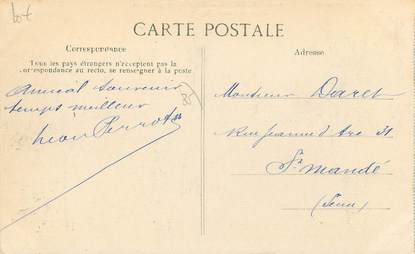 lot
CARTE POSTALE
Correspondance
Tous les pays étrangers n'acceptent pas la
correspondance au recto, se renseigner à la poste
Adresse
Amical souvenir
temps meilleur
Léon Perrot
35
Monsieur Daret
Rue Jeanne d'Arc 31
St Mandé
(Seine)